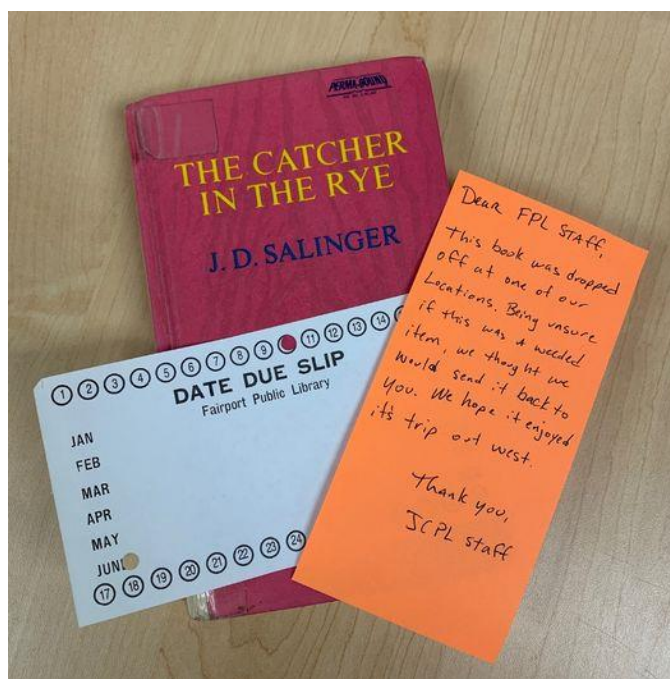 PERMA-BOUND
THE CATCHER
IN THE RYE
J. D. SALINGER
1 2 3 4 5 6 7 8 9 11 12 13 14
DATE DUE SLIP
Fairport Public Library
JAN
FEB
MAR
APR
MAY
JUNE
17 18 19 20 21 22 23 24
Dear FPL Staff,
This book was dropped
off at one of our
Locations. Being unsure
if this was a weeded
item, we thought we
would send it back to
you. We hope it enjoyed
it's trip out west.
Thank you,
JCPL staff